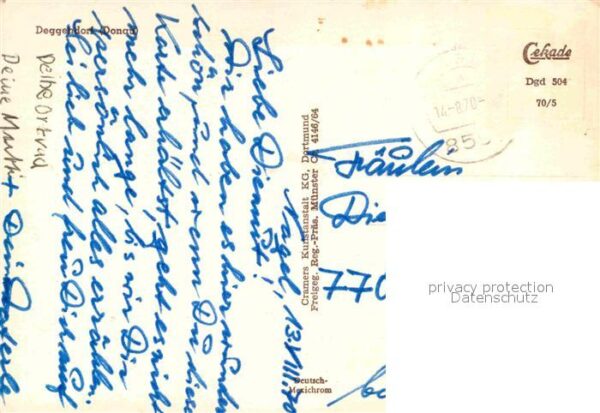 Deggendorf (Donau)
Cekade
Dgd 504
70/5
14-8.70-
85
Nagel, 13.VIII.70
Liebe Diemut!
Wir haben es hier wunder
schön, und wenn Du diese
Karte erhältst, geht es nicht
mehr lange, bis wir Dir
persönlich alles erzählen.
Sei lieb und freu Dich auf
Deine
Deine Ortrud
Deine Mutti +
Cramers Kunstanstalt KG, Dortmund
Freigeg. Reg.-Präs. Münster CR 4146/64
Fräulein
Die
770
Deutsch-
Mexichrom
privacy protection
Datenschutz